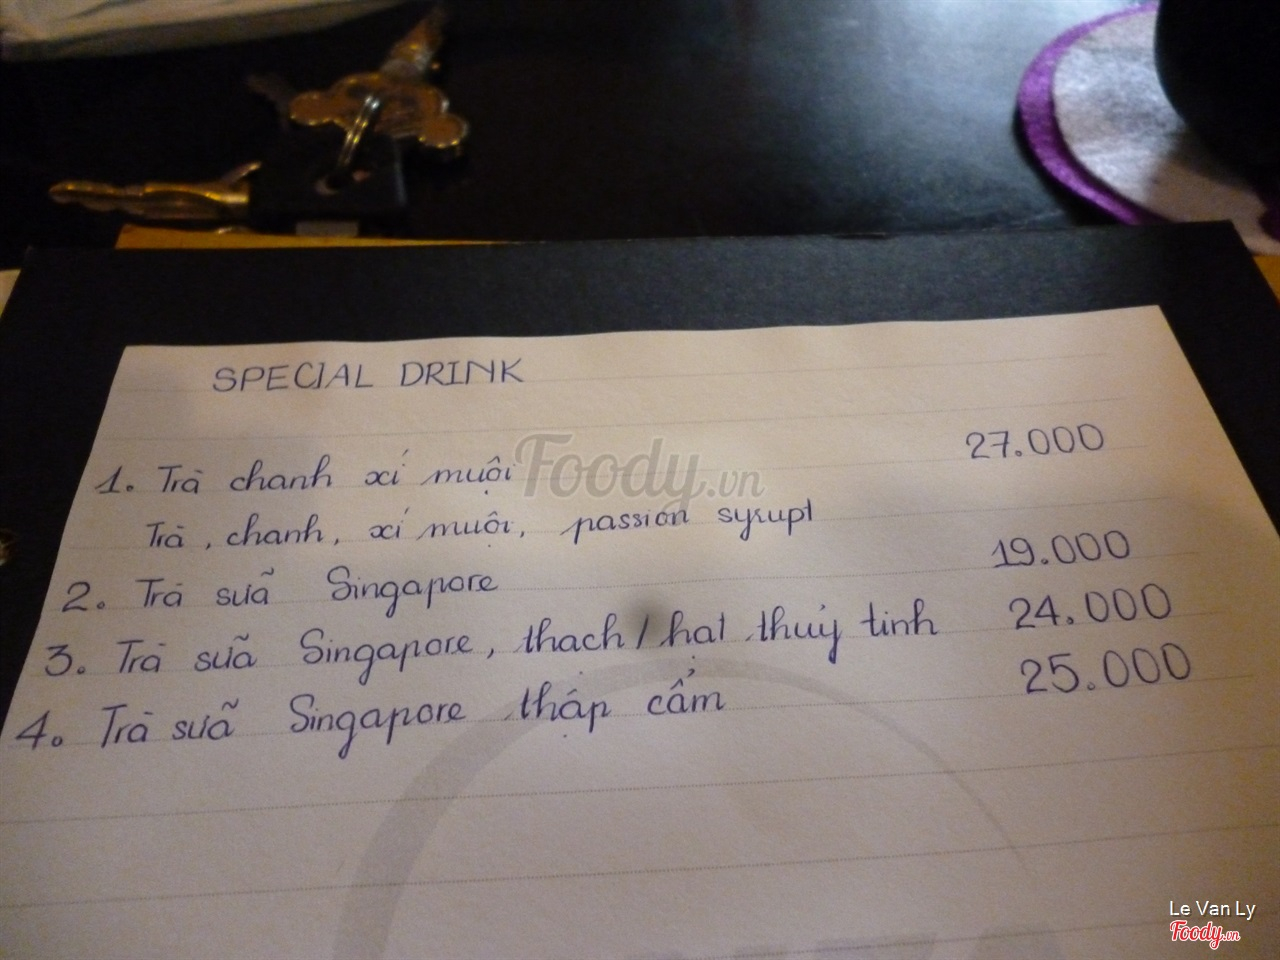 SPECIAL DRINK
1. Trà chanh xí muội 27.000
Trà, chanh, xí muội, passion syrupt
2. Trà sữa Singapore 19.000
3. Trà sữa Singapore, thạch / hạt thuỷ tinh 24.000
4. Trà sữa Singapore thập cẩm 25.000
Foody.vn
Le Van Ly
Foody.vn